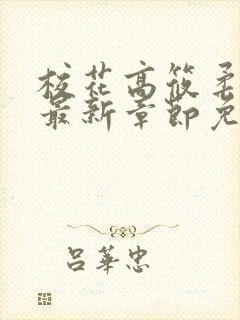 校花高筱柔
最新章節免
吕華忠